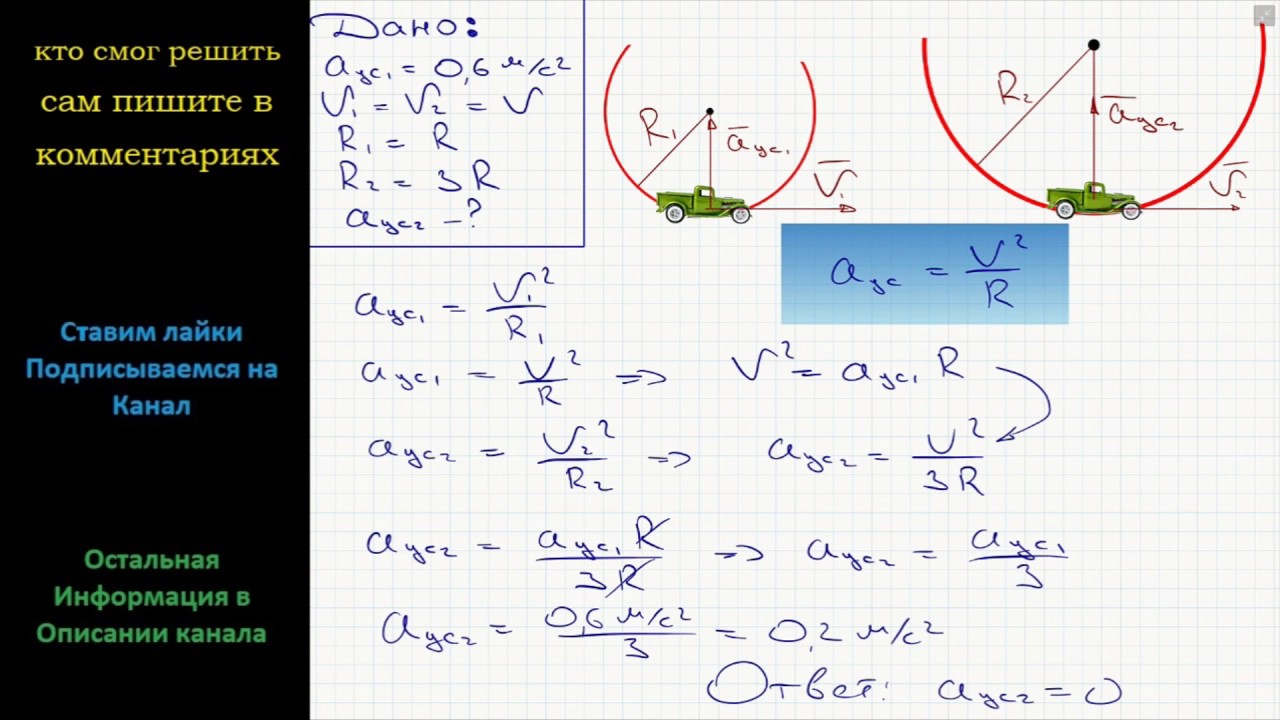 кто смог решить
сам пишите в
комментариях
Ставим лайки
Подписываемся на
Канал
Остальная
Информация в
Описании канала
Дано:
aус₁ = 0,6 м/с²
V₁ = V₂ = V
R₁ = R
R₂ = 3R
aус₂ – ?
R₁
a̅ус₁
V̅₁
R₂
a̅ус₂
V̅₂
aус = V²/R
aус₁ = V₁²/R₁
aус₁ = V²/R => V² = aус₁ R
aус₂ = V₂²/R₂ => aус₂ = V²/3R
aус₂ = aус₁ R/3R => aус₂ = aус₁/3
aус₂ = 0,6 м/с²/3 = 0,2 м/с²
Ответ: aус₂ = 0